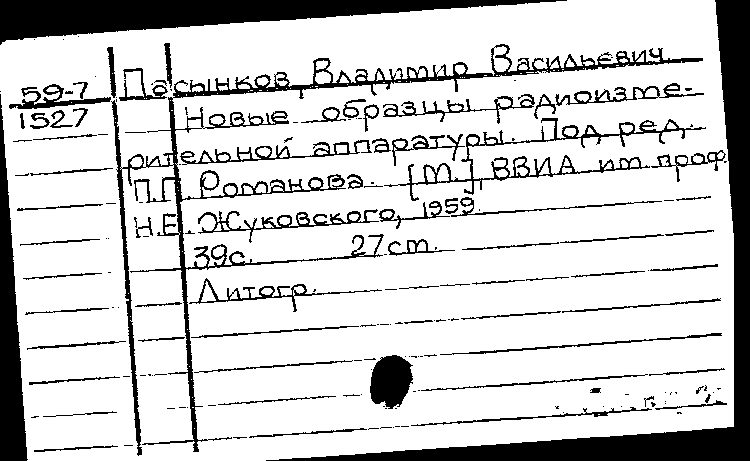 59-7 Пасынков, Владимир Васильевич.
1527 Новые образцы радиоизме-
рительной аппаратуры. Под ред.
П.П. Романова. [М.], ВВИА им. проф.
Н.Е. Жуковского, 1959.
39с. 27см.
Литогр.